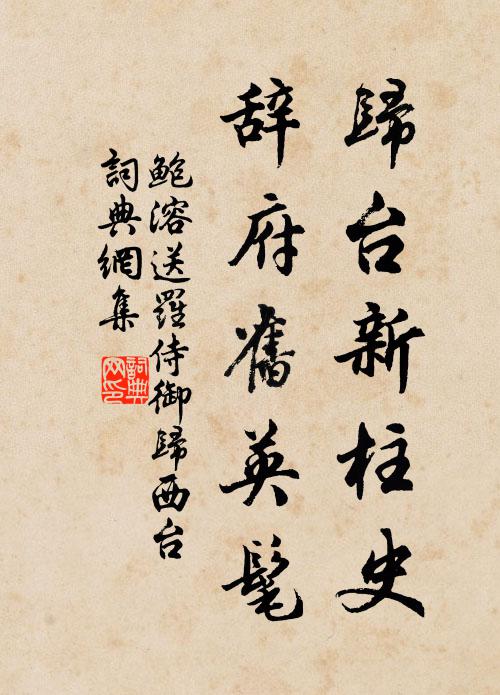 歸台新柱史
辞府舊英髦
鲍溶送羅侍御歸西台
詞典網集
詞典網印